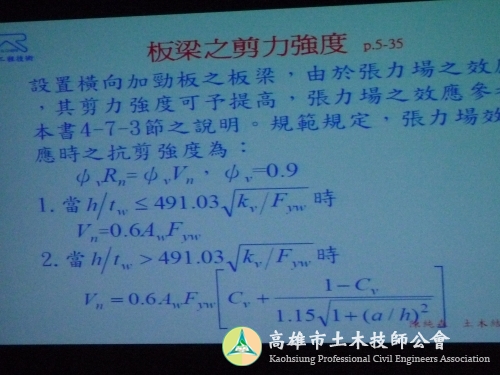 板梁之剪力強度 p.5-35
設置橫向加勁板之板梁，由於張力場之效
，其剪力強度可予提高，張力場之效應參
本書4-7-3節之說明。規範規定，張力場效
應時之抗剪強度為：
ψvRn=ψvVn，ψv=0.9
1. 當 h/tw ≤ 491.03√(kv/Fyw) 時
Vn=0.6AwFyw
2. 當 h/tw > 491.03√(kv/Fyw) 時
Vn = 0.6AwFyw[Cv + (1−Cv)/(1.15√(1+(a/h)²))]
土木技
高雄市土木技師公會
Kaohsiung Professional Civil Engineers Association